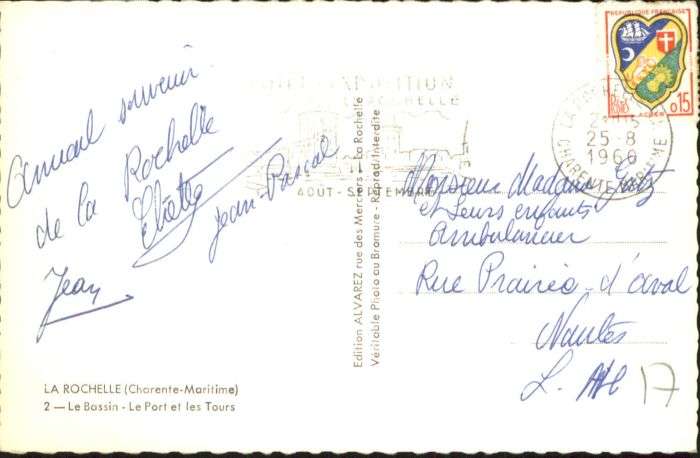 Amical souvenir
de la Rochelle
Jean
Jean-Pascal
EXPOSITION
LA ROCHELLE
AOÛT - SEPTEMBRE
REPUBLIQUE FRANÇAISE
0,15
ALGER
25-8
1960
CHARENTE MARITIME
Edition ALVAREZ rue des Merciers - La Rochelle
Véritable Photo au Bromure - Reprod. Interdite
Monsieur Madame
et Leurs enfants
Ambulancier
Rue Prairie - d'aval
Nantes
L.
17
LA ROCHELLE (Charente-Maritime)
2 — Le Bassin - Le Port et les Tours